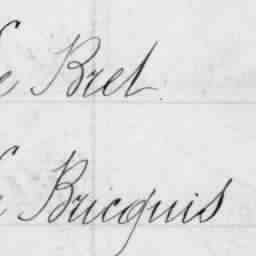 e Bret
e Bricquis